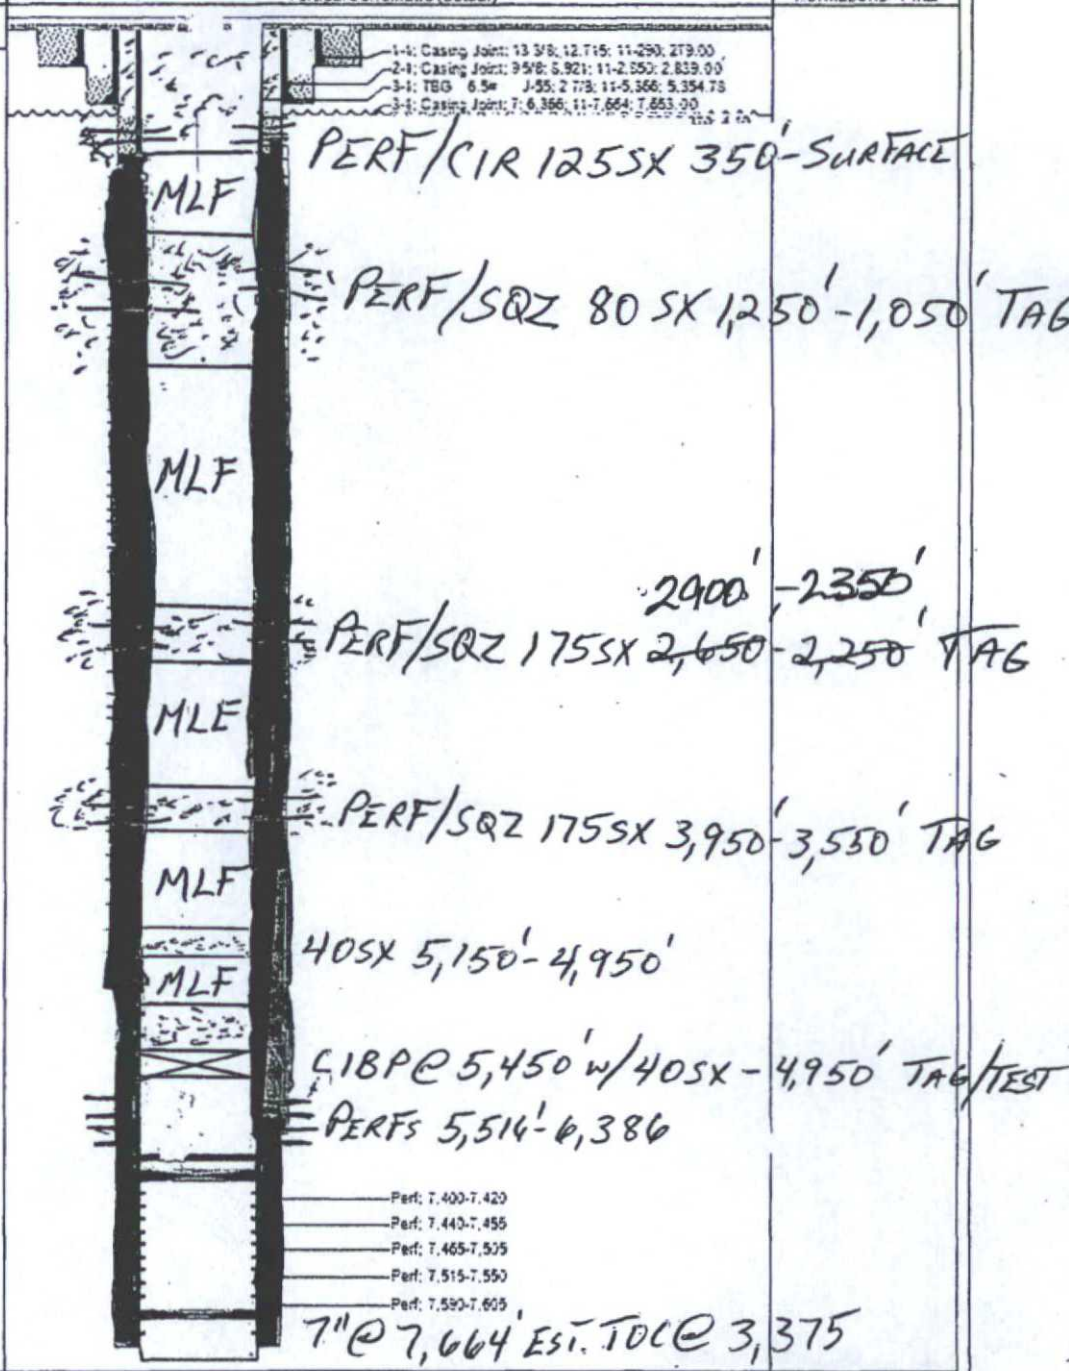 1-1; Casing Joint; 13 3/8; 12.715; 11-290; 279.00
2-1; Casing Joint; 9 5/8; 8.921; 11-2,850; 2,839.00
3-1; TBG 6.5# J-55; 2 7/8; 11-5,366; 5,354.78
3-1; Casing Joint; 7; 6.366; 11-7,664; 7,653.00
PERF/CIR 125SX 350'-SURFACE
MLF
PERF/SQZ 80 SX 1,250'-1,050' TAG
MLF
2900'-2350'
PERF/SQZ 175SX 2,650-2,250' TAG
MLF
PERF/SQZ 175SX 3,950'-3,550' TAG
MLF
40SX 5,150'-4,950'
MLF
CIBP@ 5,450' w/40SX-4,950' TAG/TEST
PERFS 5,514'-6,386
Perf; 7,400-7,420
Perf; 7,440-7,455
Perf; 7,465-7,505
Perf; 7,515-7,550
Perf; 7,590-7,605
7"@ 7,664' EST. TOC@ 3,375